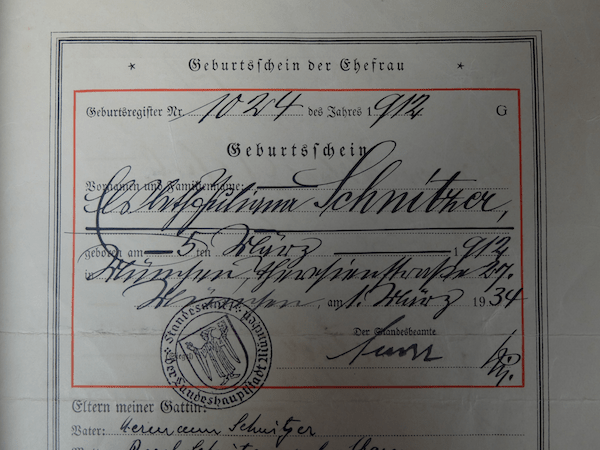 * Geburtsschein der Ehefrau *
Geburtsregister Nr. 1024 des Jahres 1912 G
Geburtsschein
Vornamen und Familienname:
Juliana Schnitzer,
geboren am 5 ten März 1912
in München, Theresienstraße 27.
München, am 1. März 1934
Der Standesbeamte
Standesamt der Landeshauptstadt München
Eltern meiner Gattin:
Vater: Hermann Schnitzer